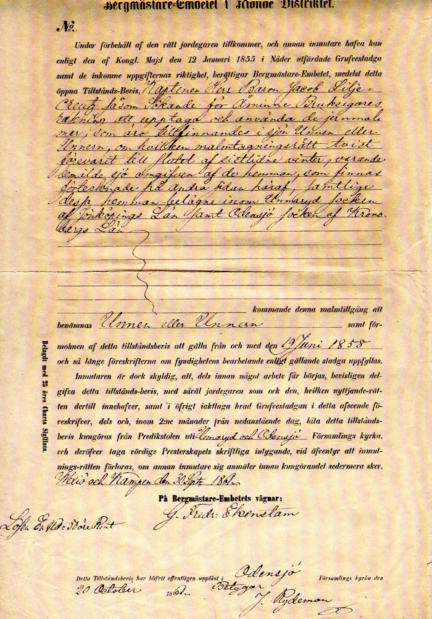 Bergmästare-Embetet i Distriktet.
No.
Under förbehåll af den rätt jordegaren tillkommer, och annan inmutare hafva kan
enligt den af Kongl. Maj:t den 12 Januari 1855 i Nåder utfärdade Grufvestadga
samt de inkomne uppgifternas riktighet, berättigar Bergmästare-Embetet, medelst detta
öppna Tillstånds-Bevis, Kaptenen Herr Baron Jacob Lilje-
Creutz såsom Sökande för Åminne Bruksegares
räkning att upptaga och använda de jernmal-
mer, som äro tillfinnandes i sjön Unnen eller
Unnern, på hvilken malmtagningsrätt
till slutet af sistlidne vinter, varande
sjö omgifven af de hemman, som finnas
på andra sidan häraf, samtlige
dessa hemman belägne inom Unnaryd socken
af Jönköpings Län samt Odensjö socken af Krono-
bergs Län
kommande denna malmtillgång att
benämnas Unnen eller Unnern samt för-
mohnen af detta tillståndsbevis att gälla från och med den 19 Juni 1858
och så länge föreskrifterna om fyndighetens bearbetande enligt gällande stadga uppfyllas.
Inmutaren är dock skyldig, att, dels innan något arbete får börjas, bevisligen del-
gifva detta tillstånds-bevis, med såväl jordegaren som ock den, hvilken nyttjande-rätten
dertill innehafver, samt i öfrigt iakttaga hvad Grufvestadgan i detta afseende före-
skrifver, dels och, inom 2:ne månader från nedanstående dag, låta detta tillstånds-
bevis kungöras från Predikstolen uti Unnaryd och Odensjö Församlings kyrka,
och deröfver taga vördige Presterskapets skriftliga intygande, vid äfventyr att inmut-
nings-rätten förloras, om annan inmutare sig anmäler innan kungörandet sedermera sker.
Wexiö och Kampen den Sept.
På Bergmästare-Embetets vägnar:
G. Fredr. Ekenstam
Belagdt med 25 öres Charta Sigillata.
Detta Tillståndsbevis har blifvit offentligen uppläst i Odensjö Församlings kyrka den
20 October Betygar
J. Rydeman